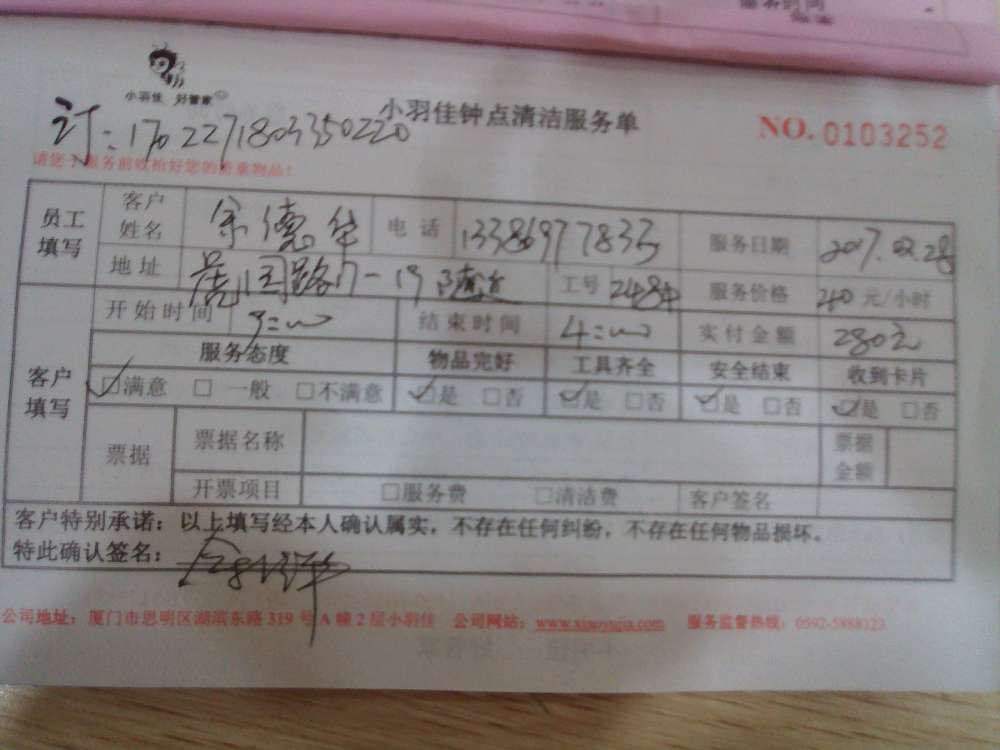 服务时间
小羽佳 好管家
小羽佳钟点清洁服务单
NO. 0103252
订:1702271803350220
请您于服务前收拾好您的贵重物品!
员工填写 客户姓名 余德华 电话 13386977833 服务日期 2017.02.28
地址 虎园路17-19 工号 2484 服务价格 40 元/小时
客户填写 开始时间 9:00 结束时间 4:00 实付金额 280元
服务态度 物品完好 工具齐全 安全结束 收到卡片
☑满意 □一般 □不满意 ☑是 □否 ☑是 □否 ☑是 □否 ☑是 □否
票据 票据名称 票据金额
开票项目 □服务费 □清洁费 客户签名
客户特别承诺:以上填写经本人确认属实,不存在任何纠纷,不存在任何物品损坏。
特此确认签名:
公司地址:厦门市思明区湖滨东路 319 号 A 幢 2 层小羽佳 公司网站:www.xiaoyujia.com 服务监督热线:0592-5888123